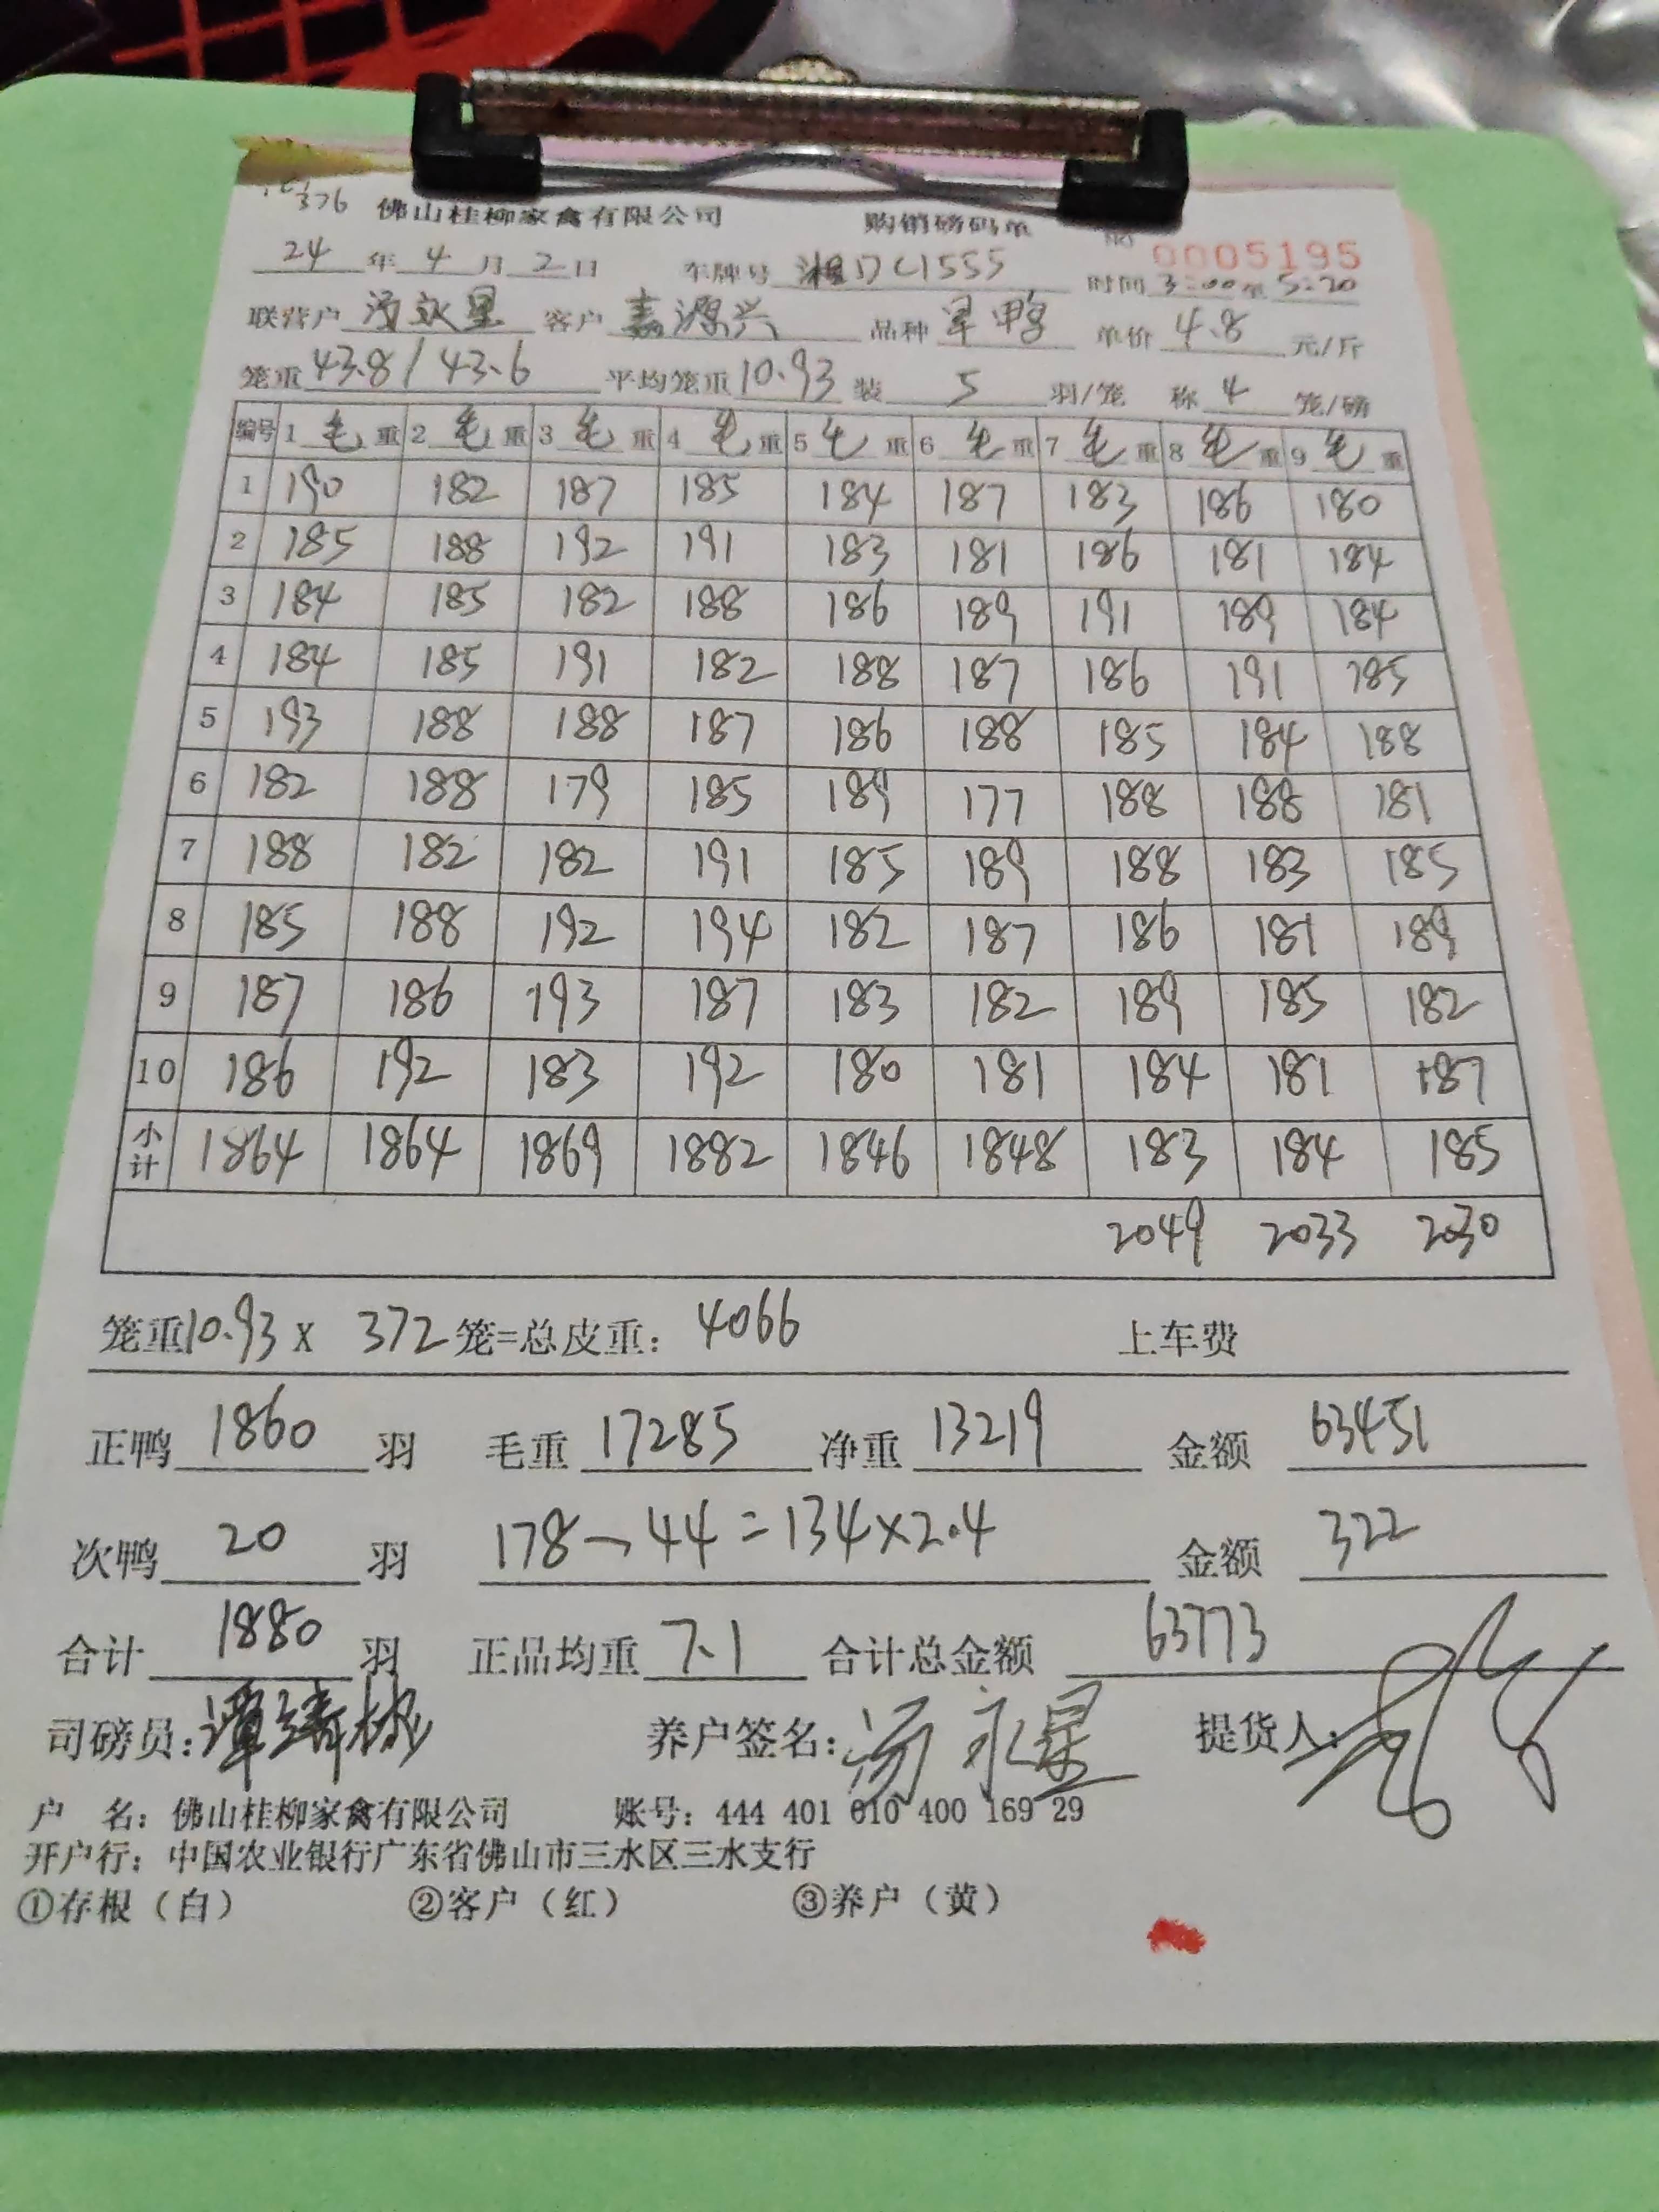 376 佛山桂柳家禽有限公司 购销磅码单 NO 0005195
24 年 4 月 2 日 车牌号 湘DC1555 时间 3:00至5:20
联营户 汤永星 客户 嘉源兴 品种 旱鸭 单价 4.8 元/斤
笼重 43.8/43.6 平均笼重 10.93 装 5 羽/笼 称 4 笼/磅
编号 1 毛 重 2 毛 重 3 毛 重 4 毛 重 5 毛 重 6 毛 重 7 毛 重 8 毛 重 9 毛 重
1 190 182 187 185 184 187 183 186 180
2 185 188 192 191 183 181 186 181 184
3 184 185 182 188 186 189 191 189 184
4 184 185 191 182 188 187 186 191 185
5 193 188 188 187 186 188 185 184 188
6 182 188 179 185 189 177 188 188 181
7 188 182 182 191 185 189 188 183 185
8 185 188 192 194 182 187 186 181 189
9 187 186 193 187 183 182 189 185 182
10 186 192 183 192 180 181 184 181 187
小计 1864 1864 1869 1882 1846 1848 183 184 185
2049 2033 2030
笼重10.93 x 372 笼=总皮重: 4066 上车费
正鸭 1860 羽 毛重 17285 净重 13219 金额 63451
次鸭 20 羽 178-44=134×2.4 金额 322
合计 1880 羽 正品均重 7.1 合计总金额 63773
司磅员: 谭绮彬 养户签名: 汤永星 提货人:
户 名: 佛山桂柳家禽有限公司 账号: 444 401 010 400 169 29
开户行: 中国农业银行广东省佛山市三水区三水支行
①存根（白） ②客户（红） ③养户（黄）